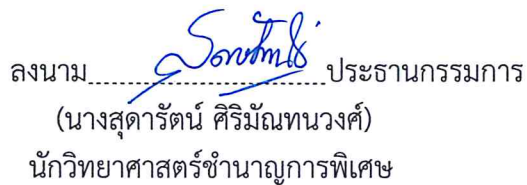 ลงนาม........................ประธานกรรมการ
(นางสุดารัตน์ ศิริมัณฑนวงศ์)
นักวิทยาศาสตร์ชำนาญการพิเศษ